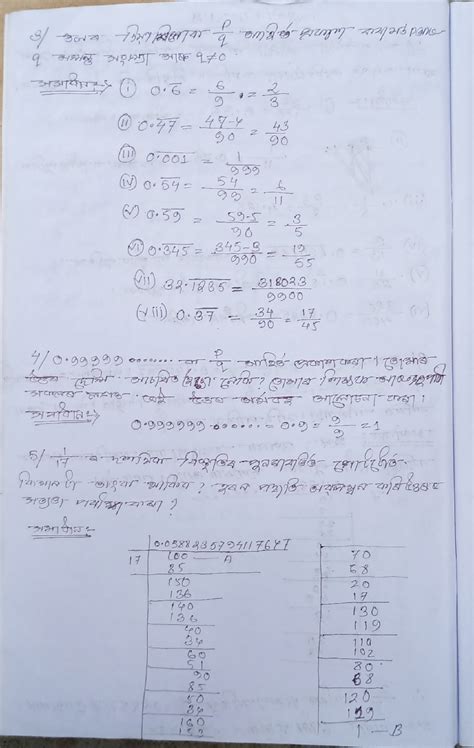 3/ তলৰ p/q আৰ্হিত প্ৰকাশ কৰা য'ত p আৰু
q অখণ্ড সংখ্যা আৰু q≠0
সমাধান :→ (i) 0.6̅ = 6/9 = 2/3
(ii) 0.47̅ = 47-4/90 = 43/90
(iii) 0.0̅0̅1̅ = 1/999
(iv) 0.5̅4̅ = 54/99 = 6/11
(v) 0.59̅ = 59-5/90 = 3/5
(vi) 0.34̅5̅ = 345-3/990 = 19/55
(vii) 32.1235 = 318023/9900
(viii) 0.37̅ = 34/90 = 17/45
4/ 0.99999....... ক p/q আৰ্হিত প্ৰকাশ কৰা। তোমাৰ
উত্তৰ দেখি আচৰিত হৈছা নেকি? তোমাৰ শিক্ষক আৰু
উত্তৰ আলোচনা কৰা।
সমাধান :→
0.999999....... = 0.9̅ = 9/9 = 1
5/ 1/17 ৰ দশমিক বিস্তৃতিৰ পুনৰাবৃত্তি
কিমান টা অংক থাকিব? হৰণ পদ্ধতি
সত্যতা পৰীক্ষা কৰা?
সমাধান :→
0.0588235794117647
17 100 — A
85
150
136
140
136
40
34
60
51
90
85
50
34
160
153
70
68
20
17
130
119
110
102
80
68
120
119
1 — B